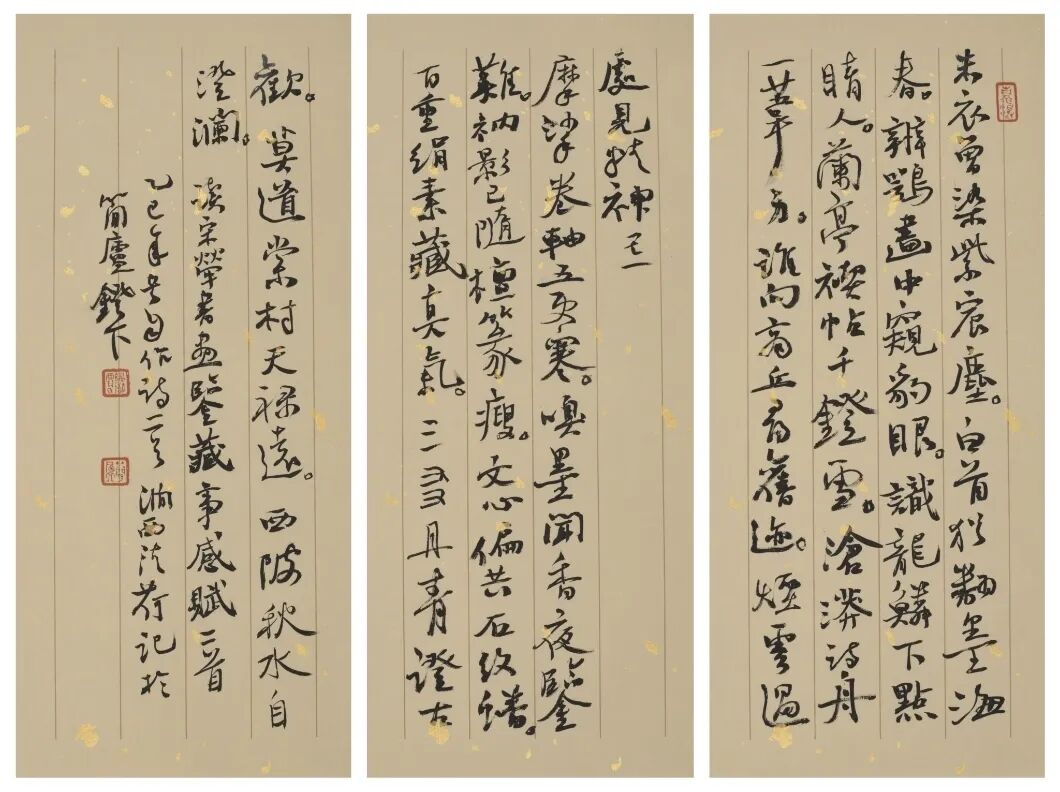 朱衣曾染紫宸塵。白首猶翻墨海
春。辨鶚畫中窺豹眼。識龍鱗下點
睛人。蘭亭禊帖千鐙雪。滄漭詩舟
一葦身。誰向商丘尋舊迹。煙雲過
處見精神 其一
摩挲卷軸五更寒。嗅墨聞香夜鑒
難。衲影已隨檀篆瘦。文心偏共石紋蟠。
百重絹素藏真氣。三丹青證古
歡。莫道棠村天祿遠。西陂秋水自
澄瀾。讀宋犖書畫鑒藏事感賦二首
乙巳年書自作詩二首 西荷記於
簡廬鐙下